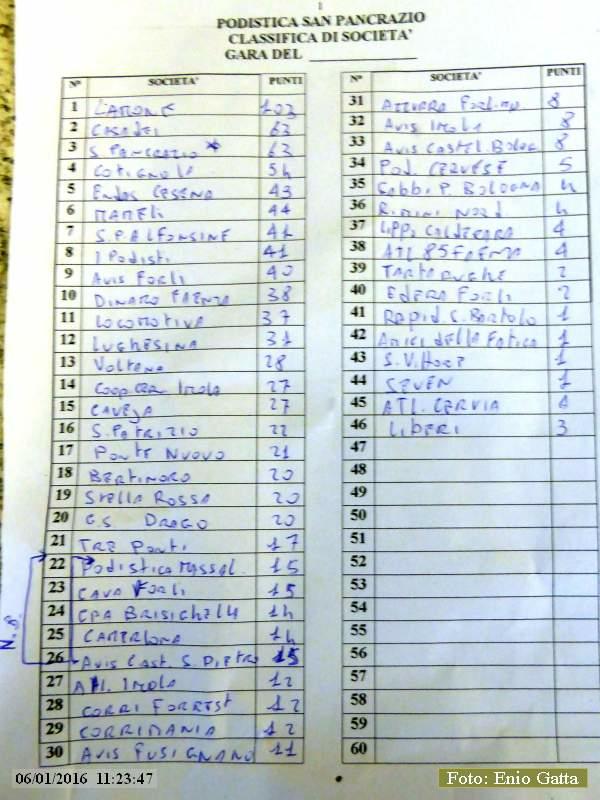 1
PODISTICA SAN PANCRAZIO
CLASSIFICA DI SOCIETA'
GARA DEL
N° SOCIETA' PUNTI
1 L'AMONE 103
2 CASADEI 63
3 S. PANCRAZIO * 63
4 COTIGNOLA 54
5 ENDAS CESENA 43
6 MAMELI 44
7 S.P. ALFONSINE 41
8 I PODISTI 41
9 AVIS FORLI 40
10 DINAMO FAENZA 38
11 LOCOMOTIVA 37
12 LUGHESINA 31
13 VOLTANA 28
14 COOP CER. IMOLA 27
15 CAVEJA 27
16 S. PATRIZIO 22
17 PONTE NUOVO 21
18 BERTINORO 20
19 STELLA ROSSA 20
20 G.S. DRAGO 20
21 TRE PONTI 17
22 PODISTICA MASSAL. 15
23 CAVA FORLI 15
24 CPA BRISIGHELLA 14
25 CAMERLONA 14
26 AVIS CAST. S. PIETRO 15
27 ATL. IMOLA 12
28 CORRI FORREST 12
29 CORRIMANIA 12
30 AVIS FUSIGNANO 11
N.B.
N° SOCIETA' PUNTI
31 AZZURRA FORLIMP. 8
32 AVIS IMOLA 8
33 AVIS CASTEL BOLOG. 8
34 POD. CERVESE 5
35 GABBI P. BOLOGNA 4
36 RIMINI NORD 4
37 LIPPI CALDERARA 4
38 ATL 85 FAENZA 4
39 TARTARUGHE 2
40 EDERA FORLI 2
41 RAPID S. BARTOLO 1
42 AMICI DELLA FATICA 1
43 S. VITTORE 1
44 SEVEN 1
45 ATL. CERVIA
46 LIBERI 3
47
48
49
50
51
52
53
54
55
56
57
58
59
60
06/01/2016 11:23:47
Foto: Enio Gatta